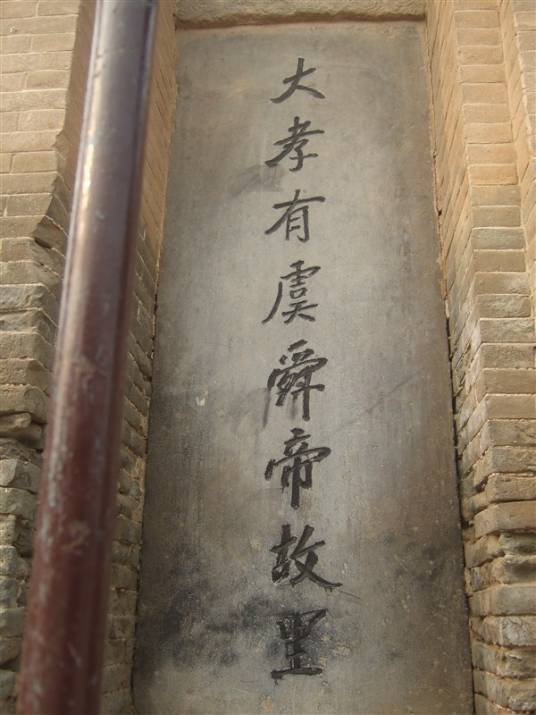 大孝有虞舜帝故里